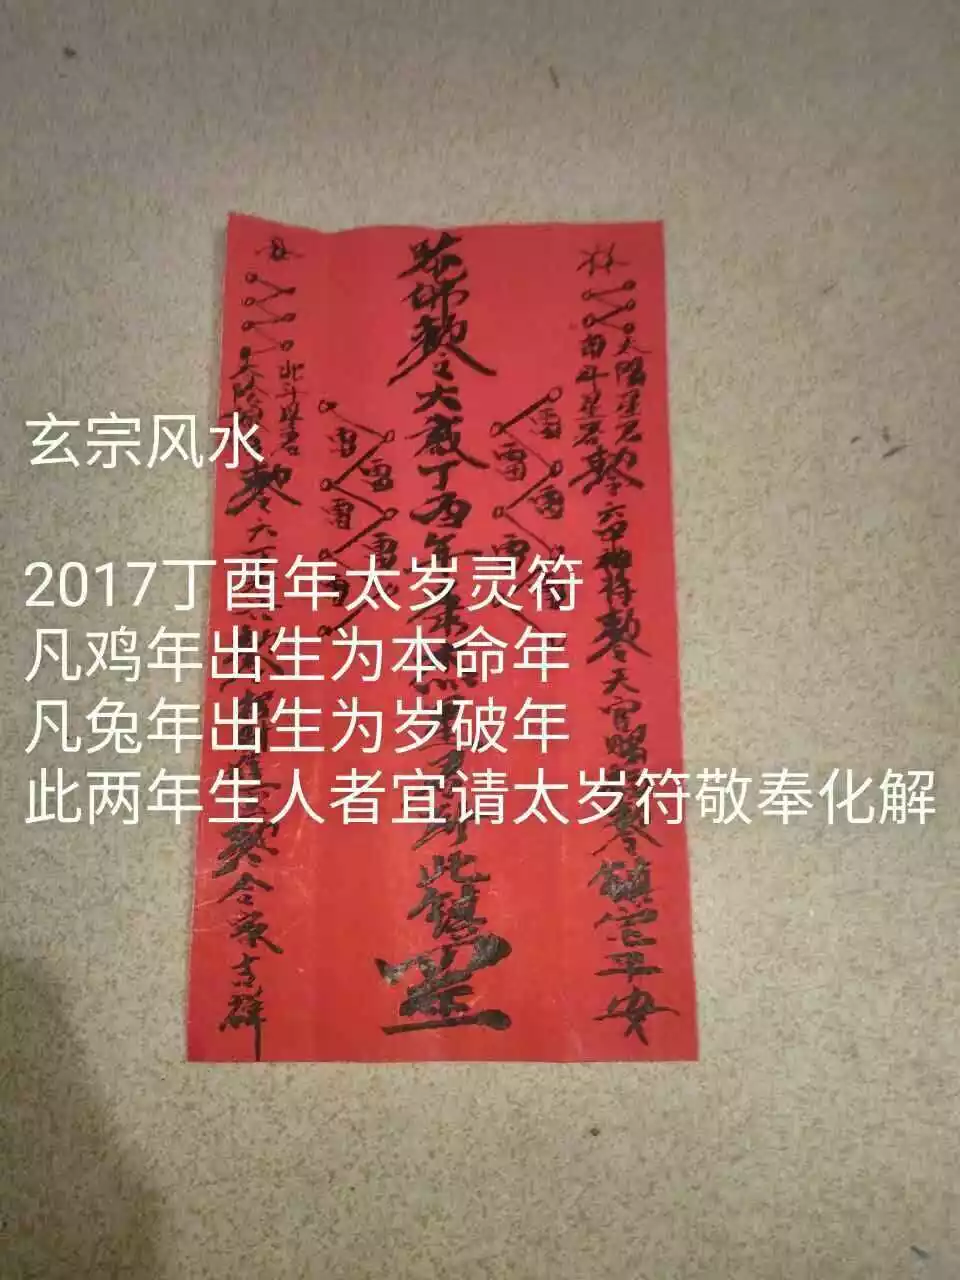 玄宗风水
2017丁酉年太岁灵符
凡鸡年出生为本命年
凡兔年出生为岁破年
此两年生人者宜请太岁符敬奉化解
佛勅令太歲丁酉年
此鎮
太陽星君
南斗星君
勅令六甲神將勅令天官賜
鎮宅平安
北斗星君
勅令六丁
勅合家吉祥
雷
雷
雷
雷
雷
雷
雷